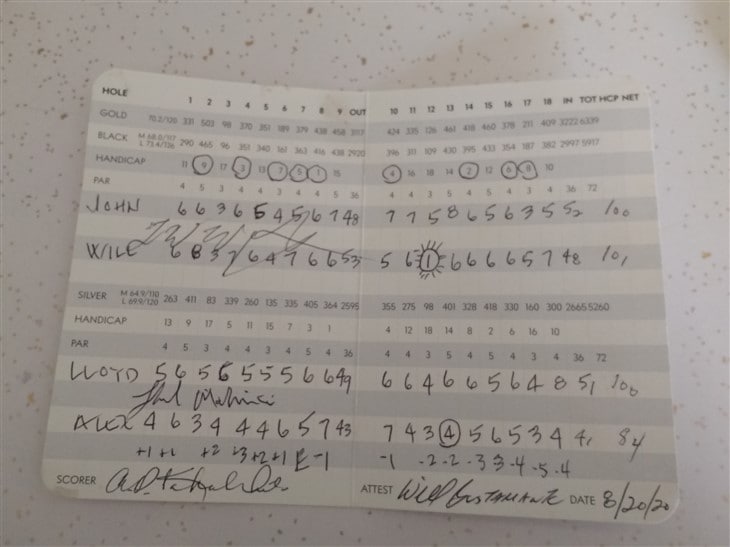 HOLE 1 2 3 4 5 6 7 8 9 OUT 10 11 12 13 14 15 16 17 18 IN TOT HCP NET
GOLD 70.2/120 331 503 98 370 351 189 379 438 458 3117 424 335 126 461 418 460 378 211 409 3222 6339
BLACK M 68.0/117 L 73.4/126 290 465 96 351 340 161 363 416 438 2920 396 311 109 430 395 433 354 187 382 2997 5917
HANDICAP 11 9 17 3 13 7 5 1 15 4 16 18 14 2 12 6 8 10
PAR 4 5 3 4 4 3 4 4 5 36 4 4 3 5 4 5 4 3 4 36 72
JOHN 6 6 3 6 5 4 5 6 7 48 7 7 5 8 6 5 6 3 5 52 100
WILL 6 8 3 7 6 4 7 6 6 53 5 6 1 6 6 6 6 5 7 48 101
SILVER M 64.9/110 L 69.9/120 263 411 83 339 260 135 335 405 364 2595 355 275 98 401 328 418 330 160 300 2665 5260
HANDICAP 13 9 17 5 11 15 7 3 1 4 12 18 14 8 2 6 16 10
PAR 4 5 3 4 4 3 4 5 4 36 4 4 3 5 4 5 4 3 4 36 72
LLOYD 5 6 5 6 5 5 5 6 6 49 6 6 4 6 6 5 6 4 8 51 100
ALEX 4 6 3 4 4 4 6 5 7 43 7 4 3 4 5 6 5 3 4 41 84
+1 +1 +2 +3 +2 +1 E -1 -1 -2 -2 -3 3 -4 -5 -4
SCORER ATTEST Will Bustamante DATE 8/20/20